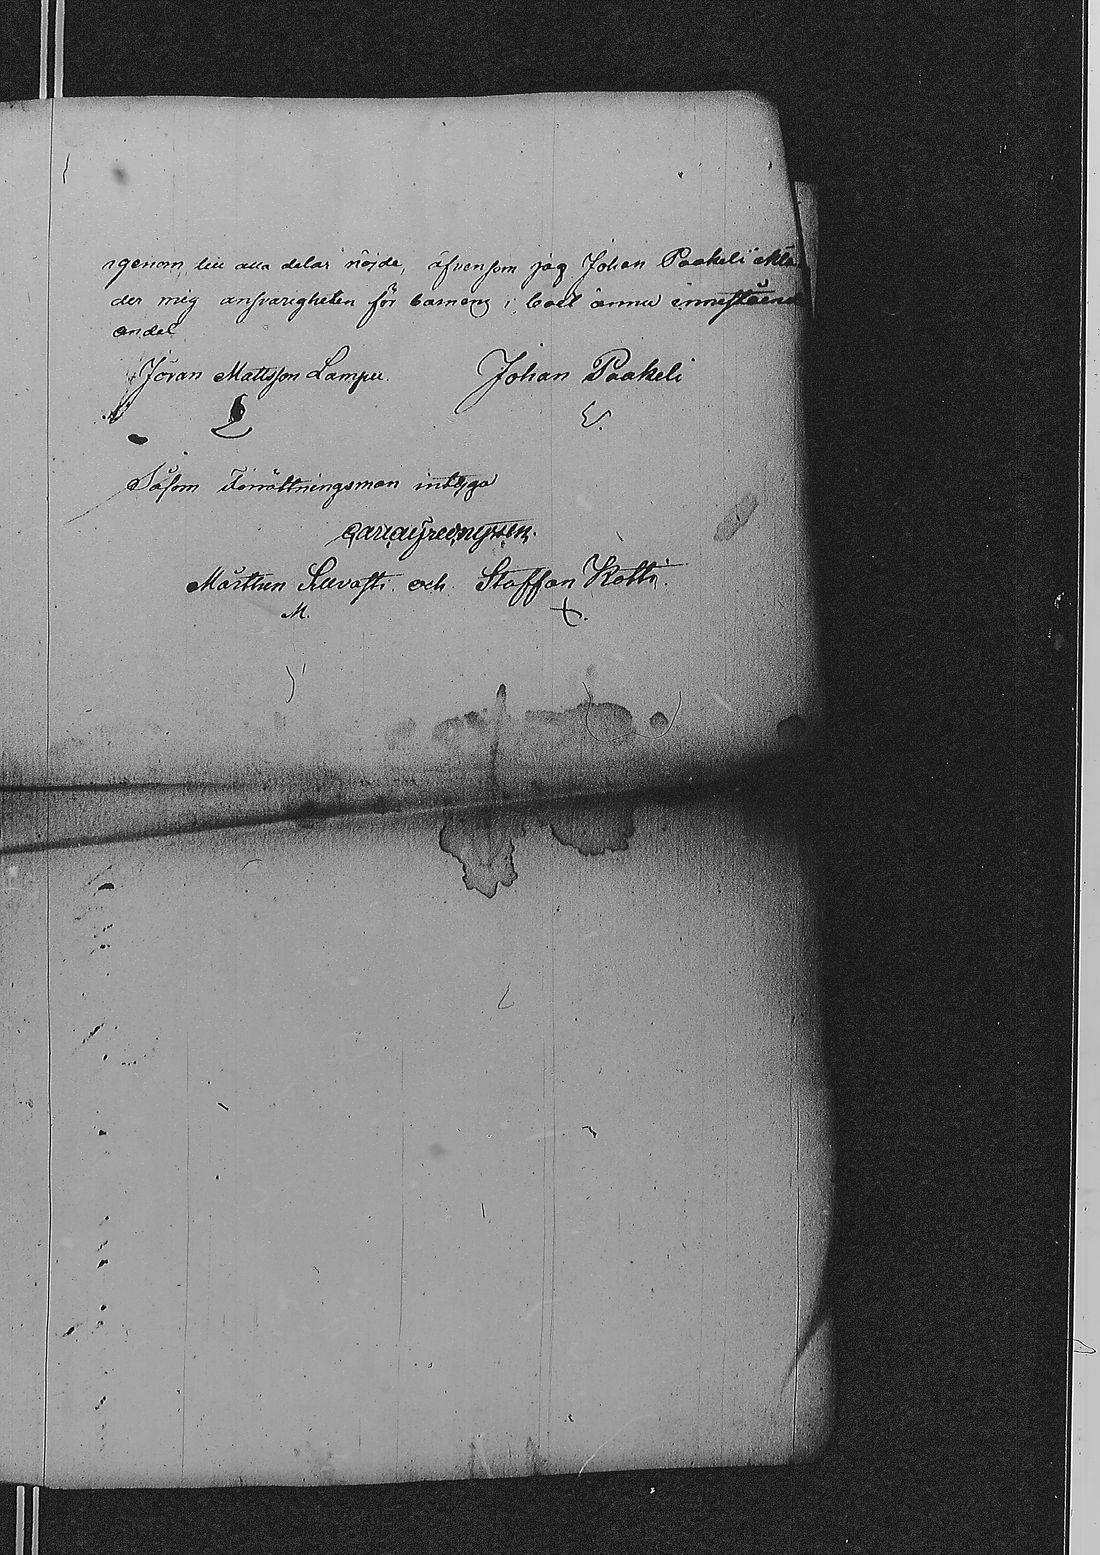 igenom till alla delar nöjde, äfvensom jag Johan Paakeli åkla
der mig ansvarigheten för barnens i boet ännu innestående
andel
Jöran Mattsson Lampu. Johan Paakeli
Såsom Förrättningsman intyga
Mårthen och Staffan Kotti.
M.